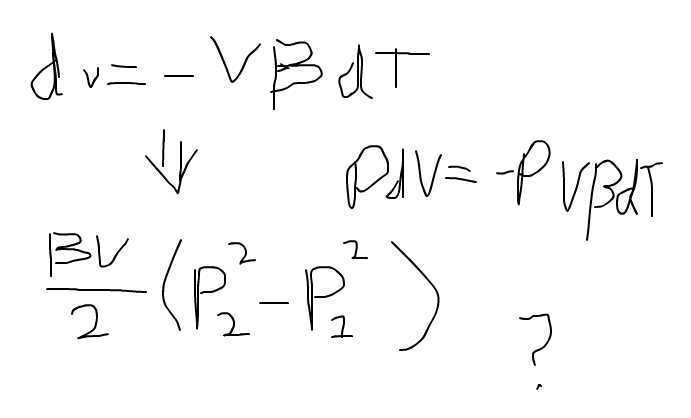 dv = - VβdT
⇓
PdV = -PVβdT
βV/2 (P₂² - P₁²)
?